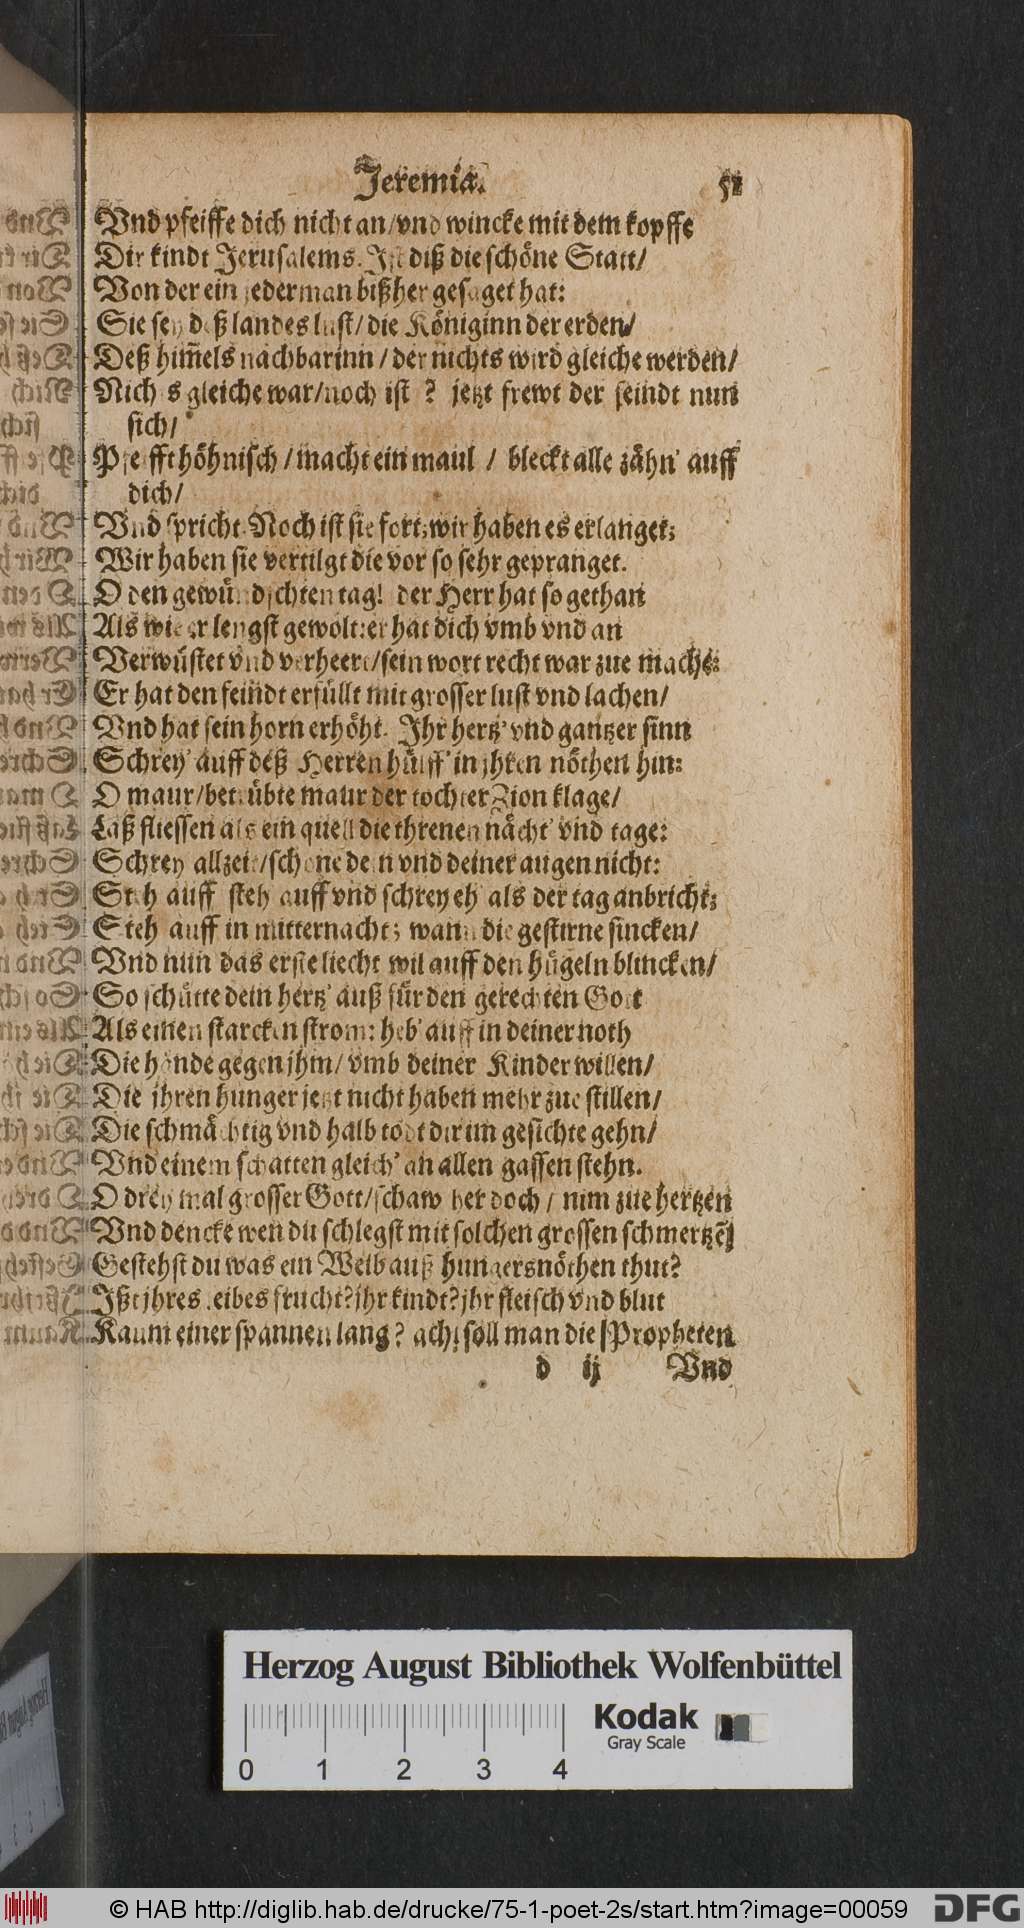 Jeremiæ. 51
Vnd pfeiffe dich nicht an/vnd wincke mit dem kopffe
Dir kindt Jerusalems. Ist diß die schöne Statt/
Von der ein jederman bißher gesaget hat:
Sie sey deß landes lust/die Königinn der erden/
Deß him̃els nachbarinn/der nichts wird gleiche werden/
Nichts gleiche war/noch ist? jetzt frewt der feindt nun
sich/
Pfeifft höhnisch/macht ein maul/bleckt alle zähn' auff
dich/
Vnd spricht. Noch ist sie fort; wir haben es erlanget;
Wir haben sie vertilgt die vor so sehr gepranget.
O den gewündschten tag! der Herr hat so gethan
Als wie er lengst gewolt: er hat dich vmb vnd an
Verwüstet vnd verheert/sein wort recht war zue machē:
Er hat den feindt erfüllt mit grosser lust vnd lachen/
Vnd hat sein horn erhöht. Ihr hertz' vnd gantzer sinn
Schrey' auff deß Herren hülff' in jhren nöthen hin:
O maur/betrübte maur der tochter Zion klage/
Laß fliessen als ein quell die threnen nächt' vnd tage:
Schrey allzeit/schone dein vnd deiner augen nicht:
Steh auff steh auff vnd schrey eh als der tag anbricht;
Steh auff in mitternacht; wann die gestirne sincken/
Vnd nun das erste liecht wil auff den hügeln blincken/
So schütte dein hertz' auß für den gerechten Gott
Als einen starcken strom: heb' auff in deiner noth
Die hände gegen jhm/vmb deiner Kinder willen/
Die jhren hunger jetzt nicht haben mehr zue stillen/
Die schmächtig vnd halb todt dir im gesichte gehn/
Vnd einem schatten gleich' an allen gassen stehn.
O drey mal grosser Gott/schaw her doch/nim zue hertzen
Vnd dencke wen du schlegst mit solchen grossen schmertzē
Gestehst du was ein Weib auß hungersnöthen thut?
Ißt jhres leibes frucht? jhr kindt? jhr fleisch vnd blut
Kaum einer spannen lang? ach! soll man die Propheten
d ij Vnd
Herzog August Bibliothek Wolfenbüttel
0 1 2 3 4
Kodak
Gray Scale
© HAB http://diglib.hab.de/drucke/75-1-poet-2s/start.htm?image=00059
DFG